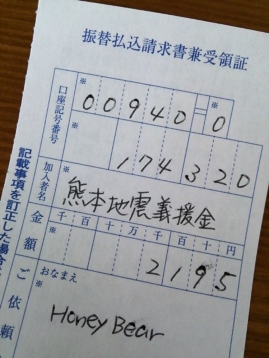 振替払込請求書兼受領証
口座記号番号
※ 00940-0 ※
※ 174320
加入者名
熊本地震義援金
金額
千百十万千百十円
※ 2195
ご依頼
おなまえ
※
Honey Bear
記載事項を訂正した場合